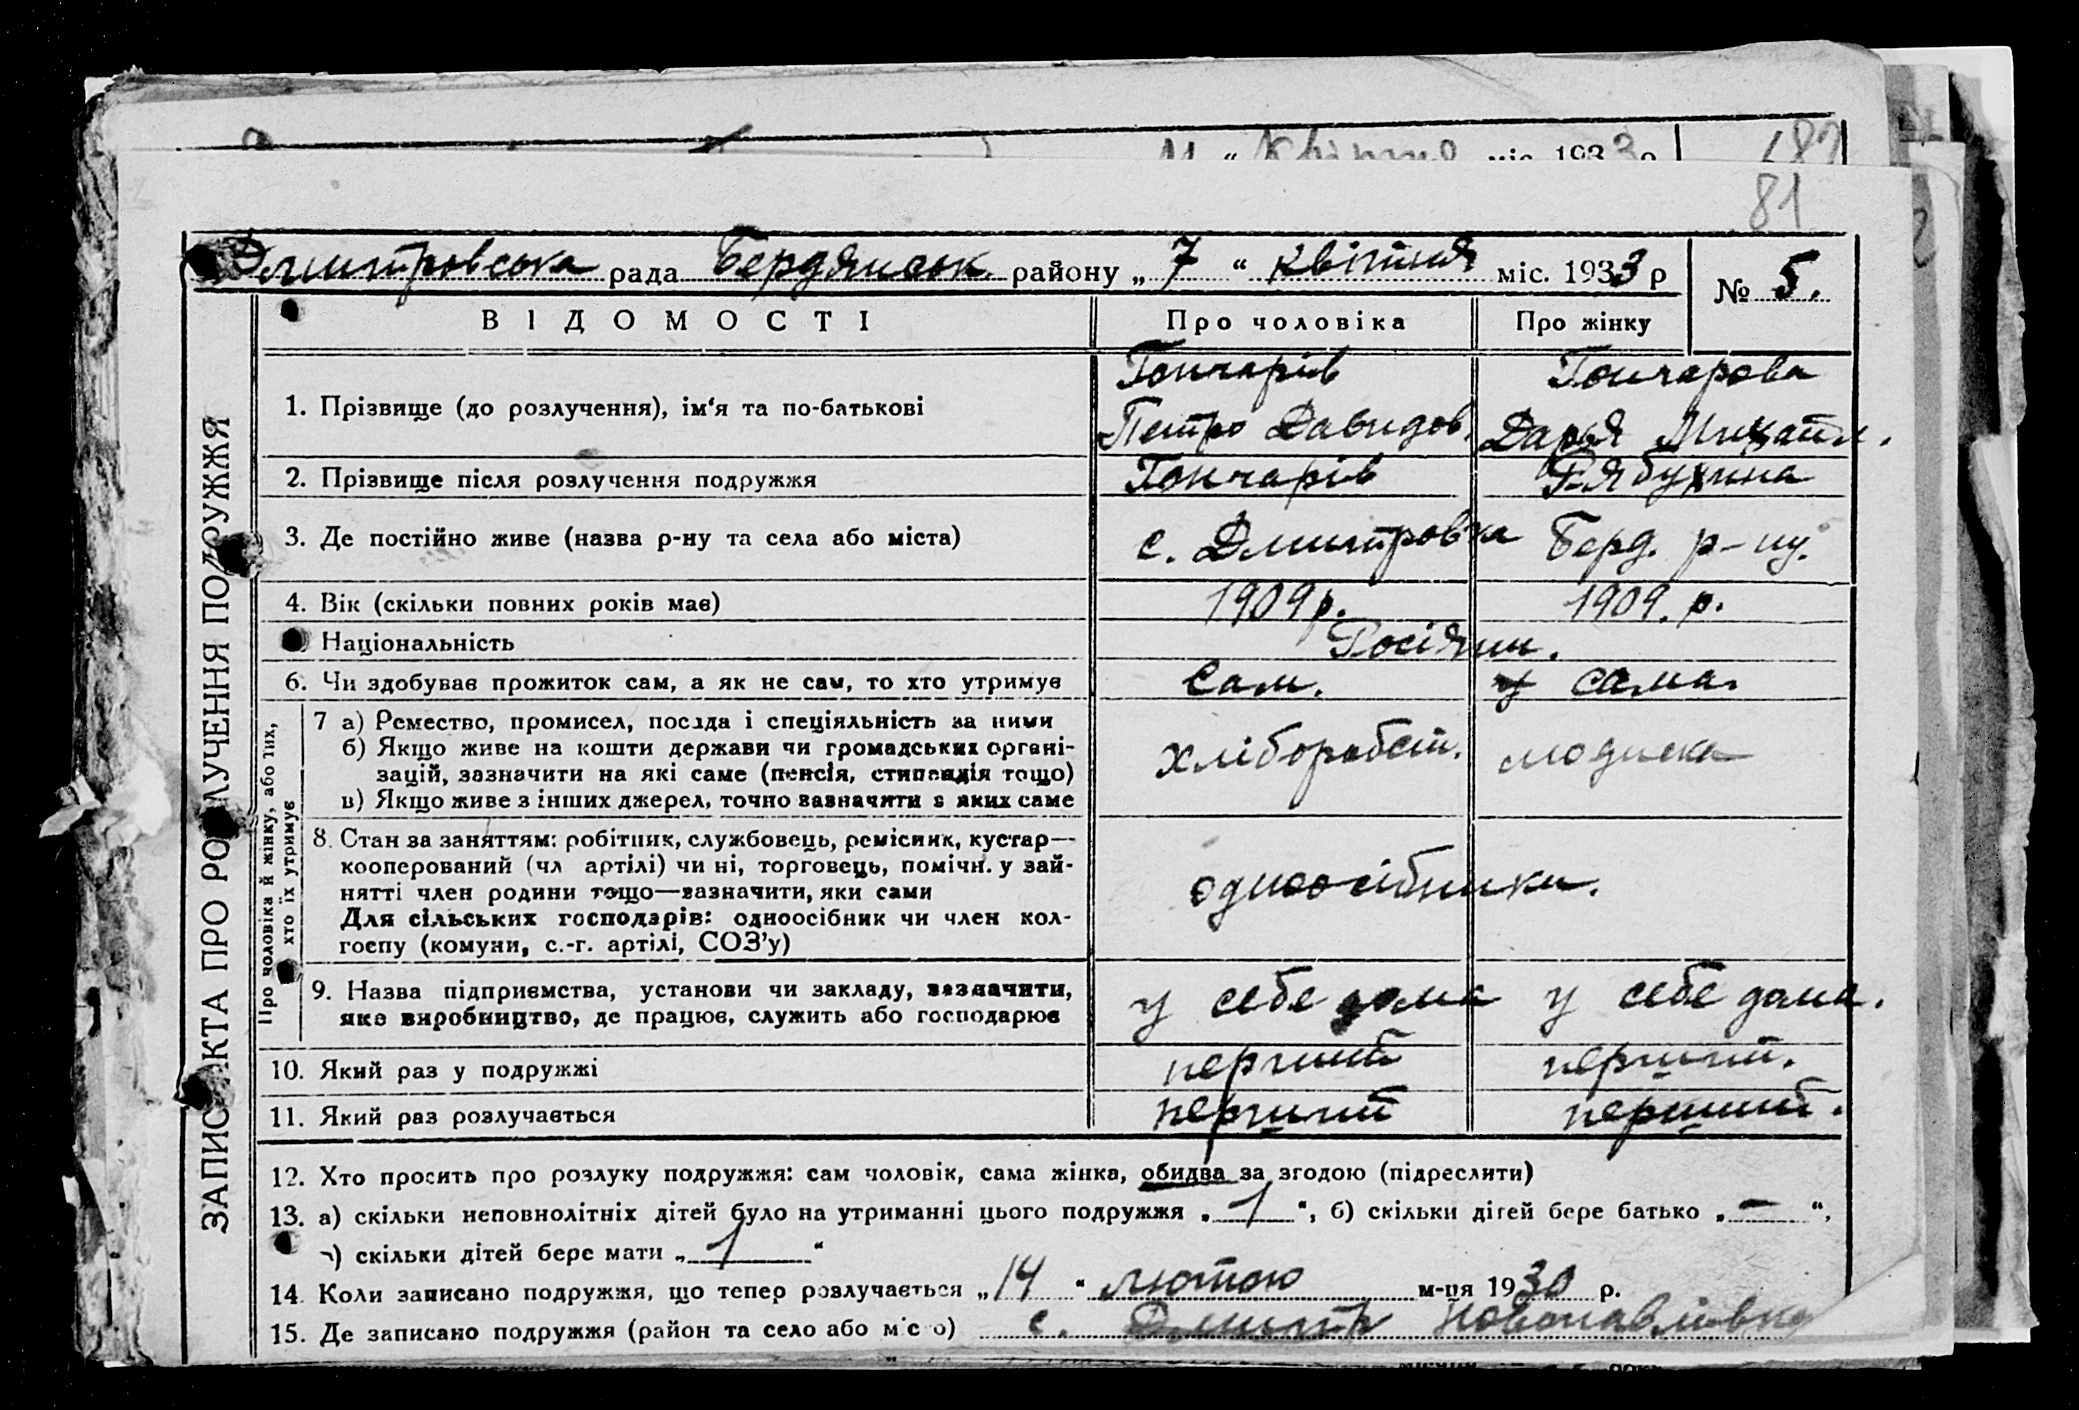 м. „ Квітня міс. 1933 р
182
81
Дмитровська рада Бердянськ. району „ 7 “ квітня міс. 1933 р
№ 5.
ЗАПИС АКТА ПРО РОЗЛУЧЕННЯ ПОДРУЖЖЯ
ВІДОМОСТІ Про чоловіка Про жінку
Гончарів Гончарова
1. Прізвище (до розлучення), ім‘я та по-батькові
Петро Давидов. Дарья Михайл.
2. Прізвище після розлучення подружжя Гончарів Рябухина
3. Де постійно живе (назва р-ну та села або міста) с. Дмитровка Берд. р-ну.
4. Вік (скільки повних років має) 1909 р. 1909. р.
Національність Росіяни.
6. Чи здобуває прожиток сам, а як не сам, то хто утримує Сам. у сама.
Про чоловіка й жінку, або тих,
хто їх утримує
7 а) Ремество, промисел, посада і спеціяльність за ними
б) Якщо живе на кошти держави чи громадських органі-
зацій, зазначити на які саме (пенсія, стипендія тощо) хліборобст. модистка
в) Якщо живе з інших джерел, точно зазначити з яких саме
8. Стан за заняттям: робітник, службовець, ремісник, кустар—
кооперований (чл артілі) чи ні, торговець, помічн. у зай-
нятті член родини тощо—зазначити, яки сами одноосібники.
Для сільських господарів: одноосібник чи член кол-
госпу (комуни, с.-г. артілі, СОЗ’у)
9. Назва підприємства, установи чи закладу, зазначити, у себе дома у себе дома.
яке виробництво, де працює, служить або господарює
10. Який раз у подружжі перший перший.
11. Який раз розлучається перший перший.
12. Хто просить про розлуку подружжя: сам чоловік, сама жінка, обидва за згодою (підреслити)
13. а) скільки неповнолітніх дітей було на утриманні цього подружжя „ 1 “, б) скільки дітей бере батько „ — “,
в) скільки дітей бере мати „ 1 “
14. Коли записано подружжя, що тепер розлучається „ 14 “ лютого м-ця 1930 р.
15. Де записано подружжя (район та село або місто) с. Дмитр Новопавлівка